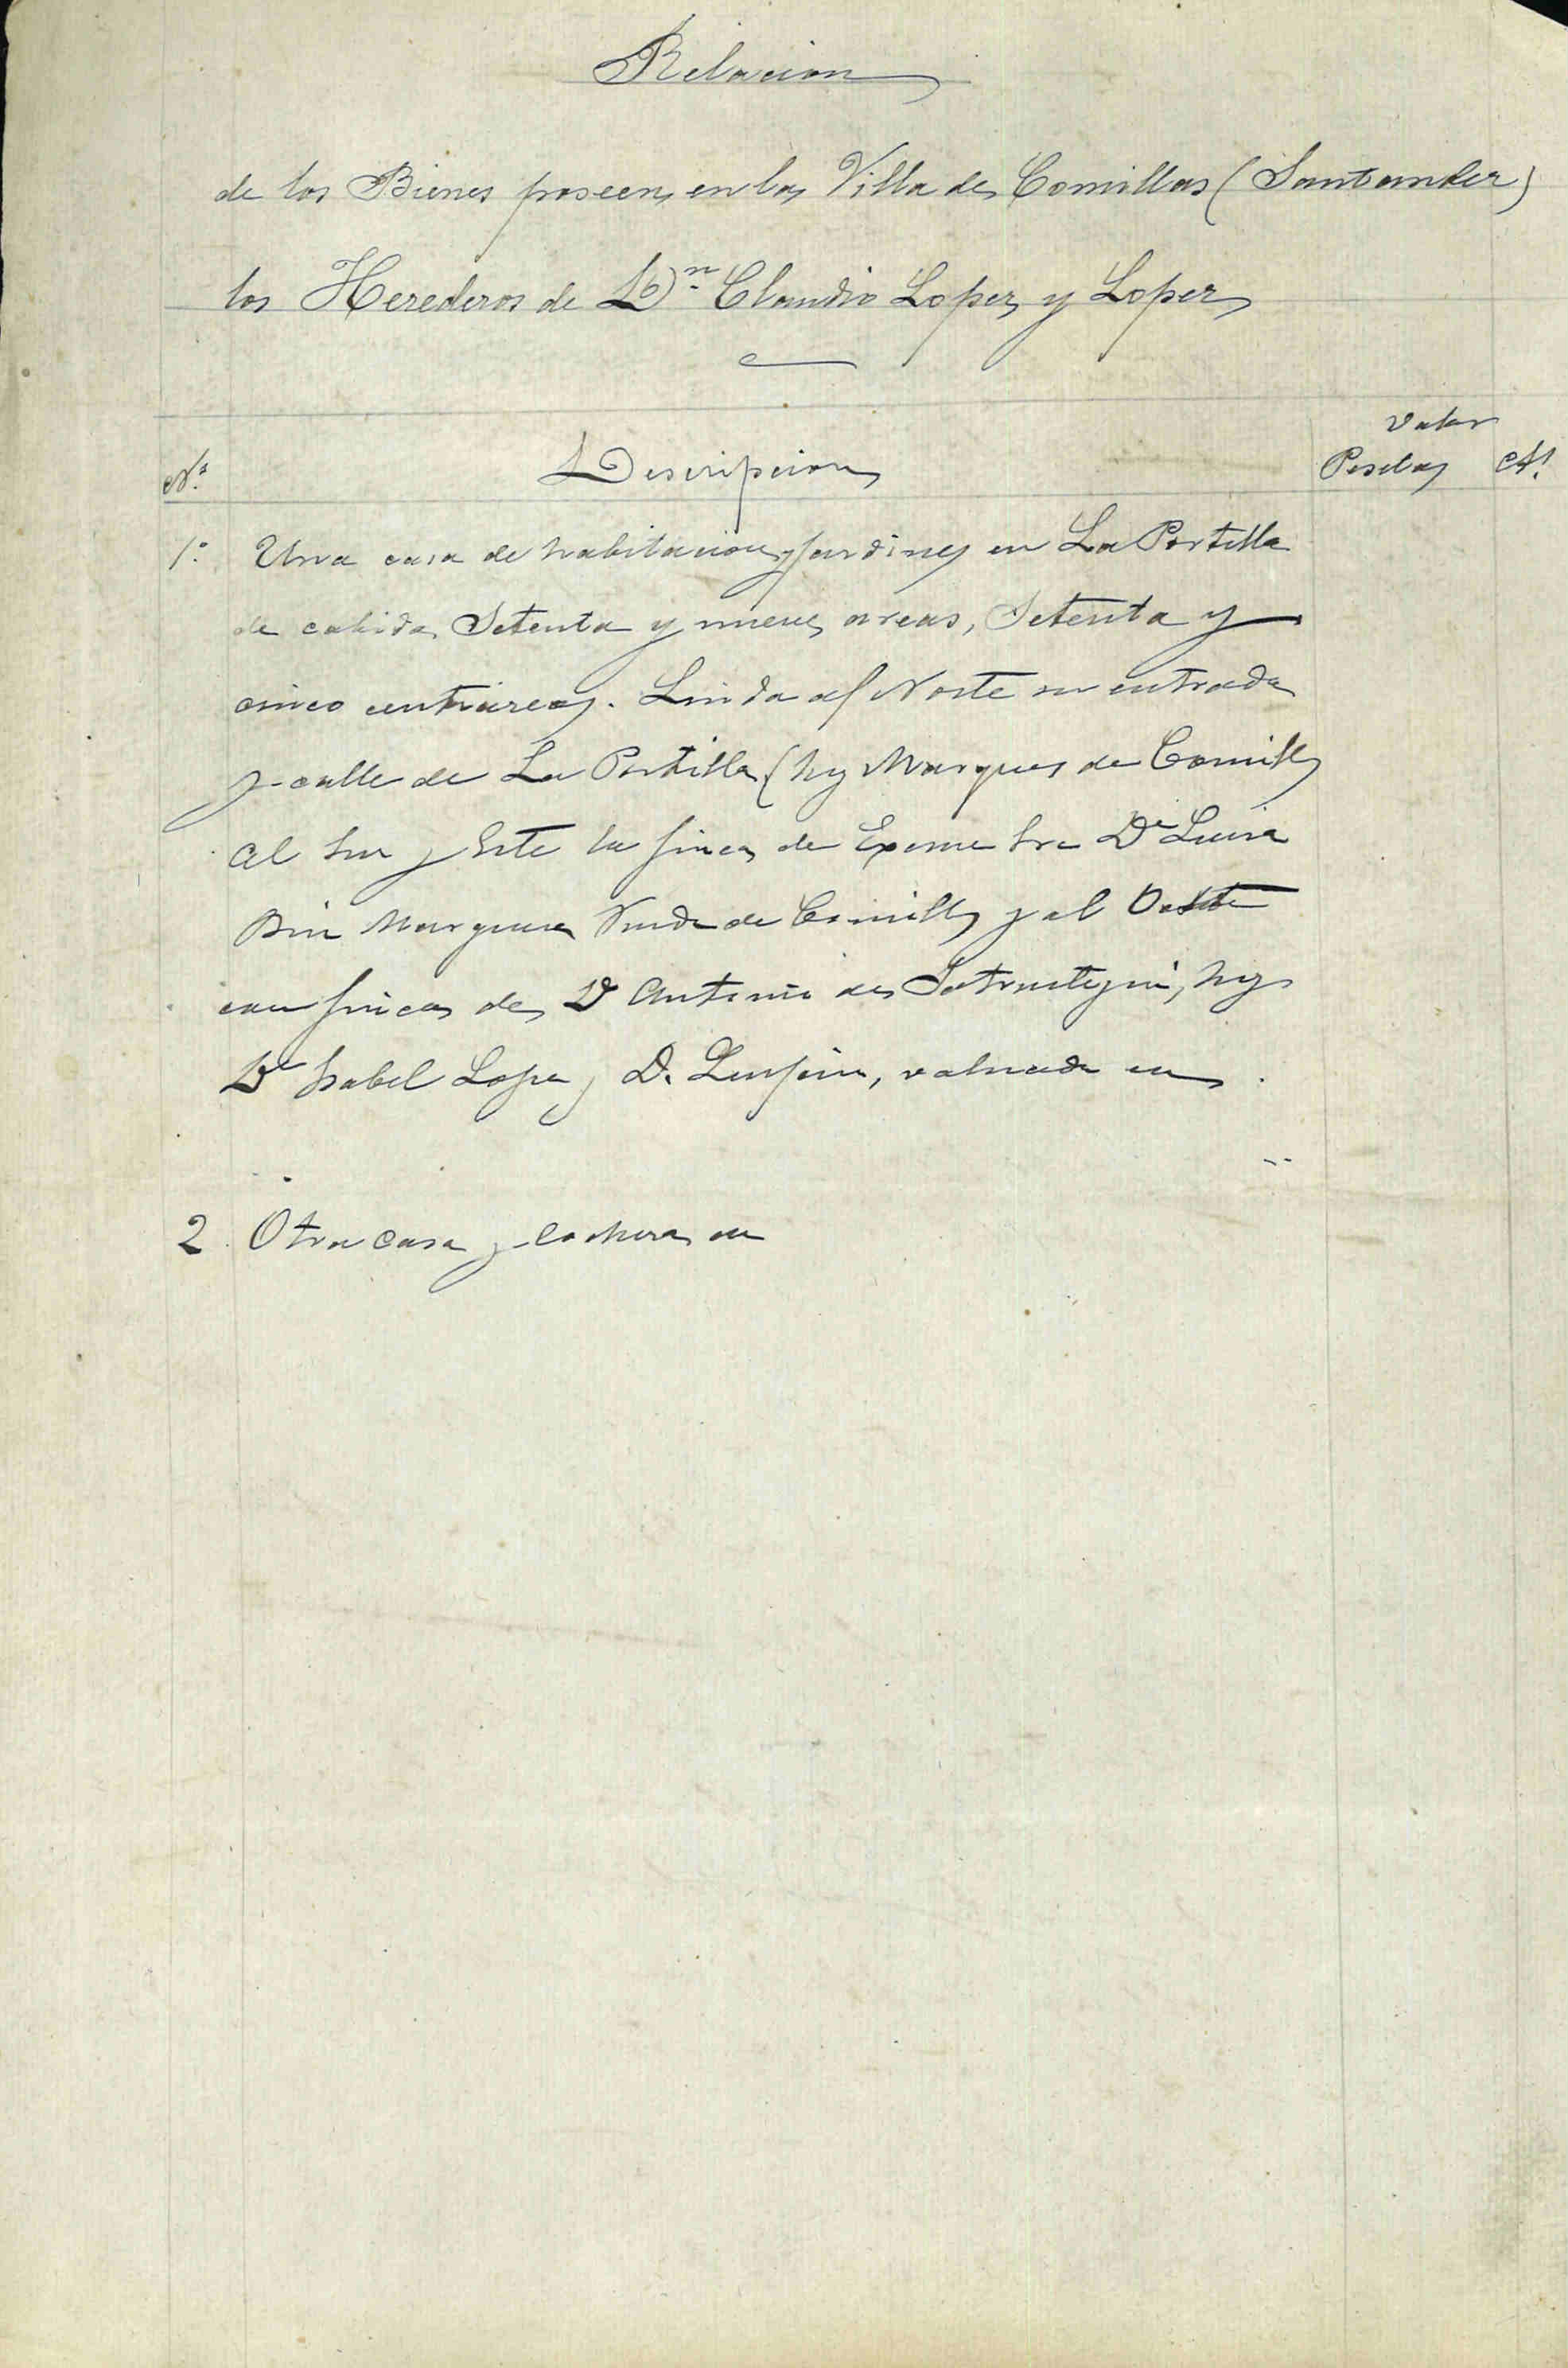 Relacion
de los Bienes poseen en la Villa de Comillas (Santander)
los Herederos de Dn. Claudio Lopez y Lopez
Valor
No. Descripcion Pesetas Ct.
1.o Una casa de habitacion y jardines en La Portilla
de cabida Setenta y nueve areas, Setenta y
cinco centiareas. Linda al Norte su entrada
y calle de La Portilla (hoy Marques de Comillas
al Sur y Este la finca de Excma Sra Da Luisa
Bru Marquesa Viuda de Comillas y al Oeste
con fincas de D Antonio de Satrustegui, hoy
Da Isabel Lopez y D. , valuada en
2 Otra casa y cochera en